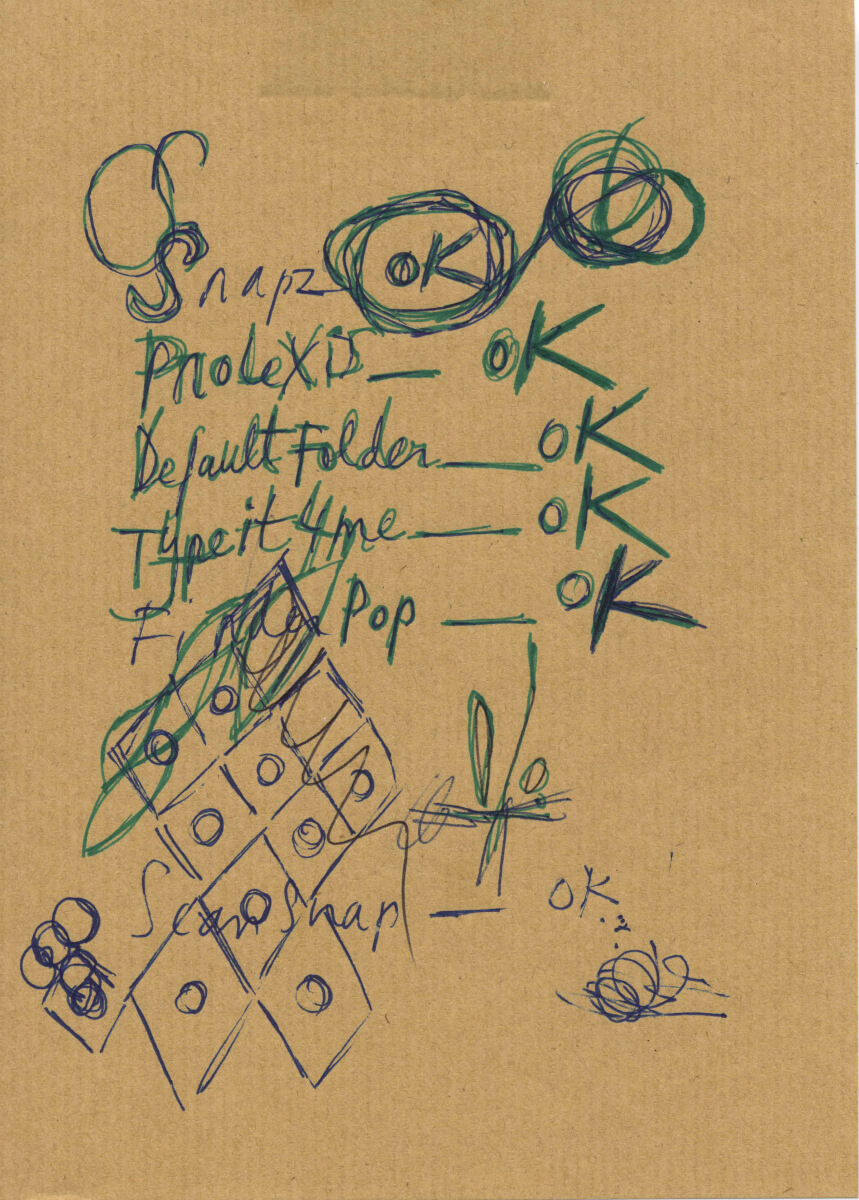 Snapz OK
ProLexis — OK
Default Folder — OK
Type it 4 me — OK
Finder Pop — OK
ScanSnap — OK